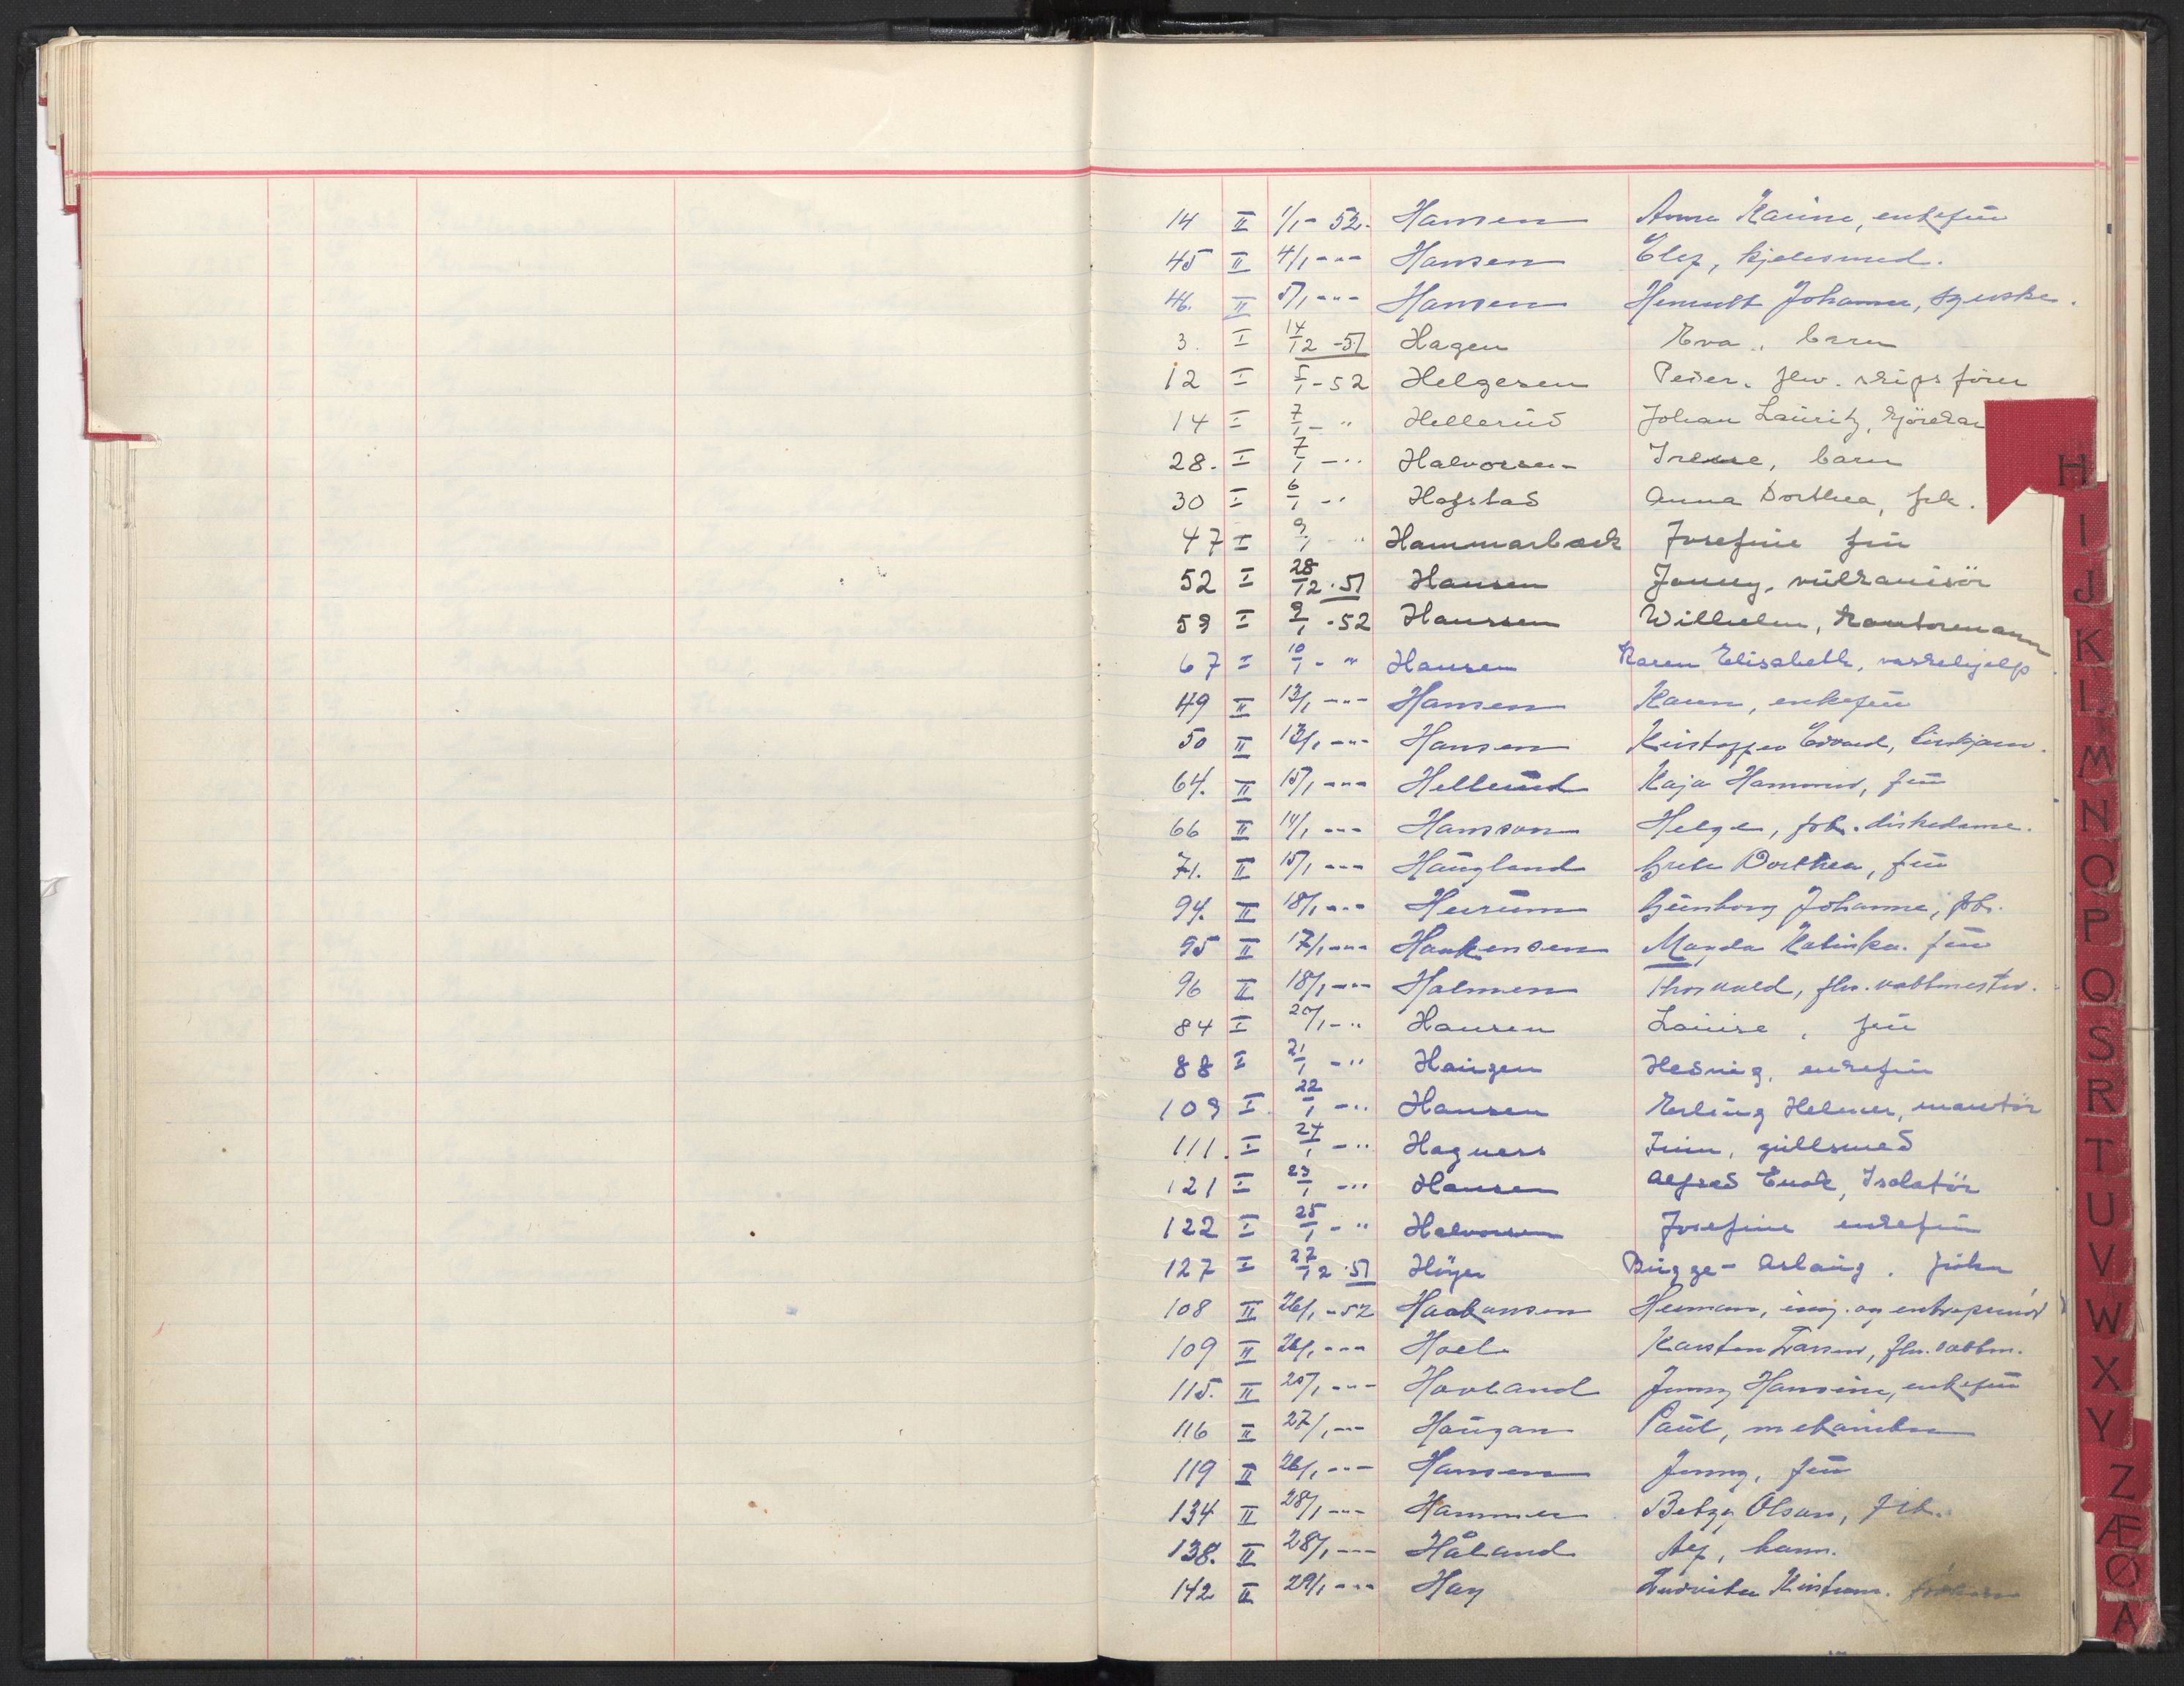 14 II 1/1 - 52. Hansen Anna Karine, enkefrü
45 II 4/1 - " - Hansen Elef, kjelesmed.
46. II 5/1 - " - Hansen Johanne, syerske.
3. I 14/12 - 51 Hagen Eva, barn
12 I 5/1 - 52 Helgesen Peder. fhv. skipsförer
14 I 7/1 - " Hellerüd Johan Laüritz,
28. I 7/1 - " Halvorsen Irene, barn
30 I 6/1 - " Hofstad Anna Dorthea, frk.
47 I 9/1 " Hammarbæck Josefine frü
52 I 28/12 . 51 Hansen Jonny, vülkanisör
59 I 9/1 - 52 Hanssen Wilhelm, kontormann
67 I 10/1 - " Hansen Karen Elisabeth, vaskehjelp
49 II 13/1 - " - Hansen Karen, enkefrü
50 II 13/1 - " - Hansen Kristoffer Edvard,
64. II 15/1 - " - Hellerüd Kaja frü
66 II 14/1 - " - Hansson Helga, frk. diskedame.
71. II 15/1 - " - Haügland Grete Dorthea, frü
94. II 18/1 - " - Heürüm Günborg Johanne, frk.
95 II 17/1 - " - Haakensen Magda Katinka. frü
96 II 18/1 - " - Holmen Thorvald, fhv. vaktmester.
84 I 20/1 - " Hansen Loüise, frü
88 I 21/1 - " Haügen Hedvig, enkefrü
109 I. 22/1 - " Hansen Erling Helmer, montör
111. I 24/1 - " Hagness güllsmed
121 I 23/1 - " Hansen Alfred Enok, Isolatör
122 I 25/1 - " Halvorsen Josefine enkefrü
127 I 27/12 . 51 Höyer Bügge - Aslaüg.
108 II 26/1 - 52 Haakonsen Herman, ing. og entreprenör
109 II 26/1 - " - Hoel Karsten Larsen, fhv. vaktm.
115. II 25/1 - " - Hovland Jenny Hansine, enkefrü
116 II 27/1 - " - Haügan Paül, mekaniker
119 II 26/1 - " - Hansen Jenny, frü
134 II 28/1 - " - Hammer Betzy Olsen, frk.
138. II 28/1 - " - Håland Alf, barn.
142 II 29/1 - " - Hay
H
I
J
K
L
M
N
O
P
Q
S
R
T
U
V
W
X
Y
Z
Æ
Ø
A